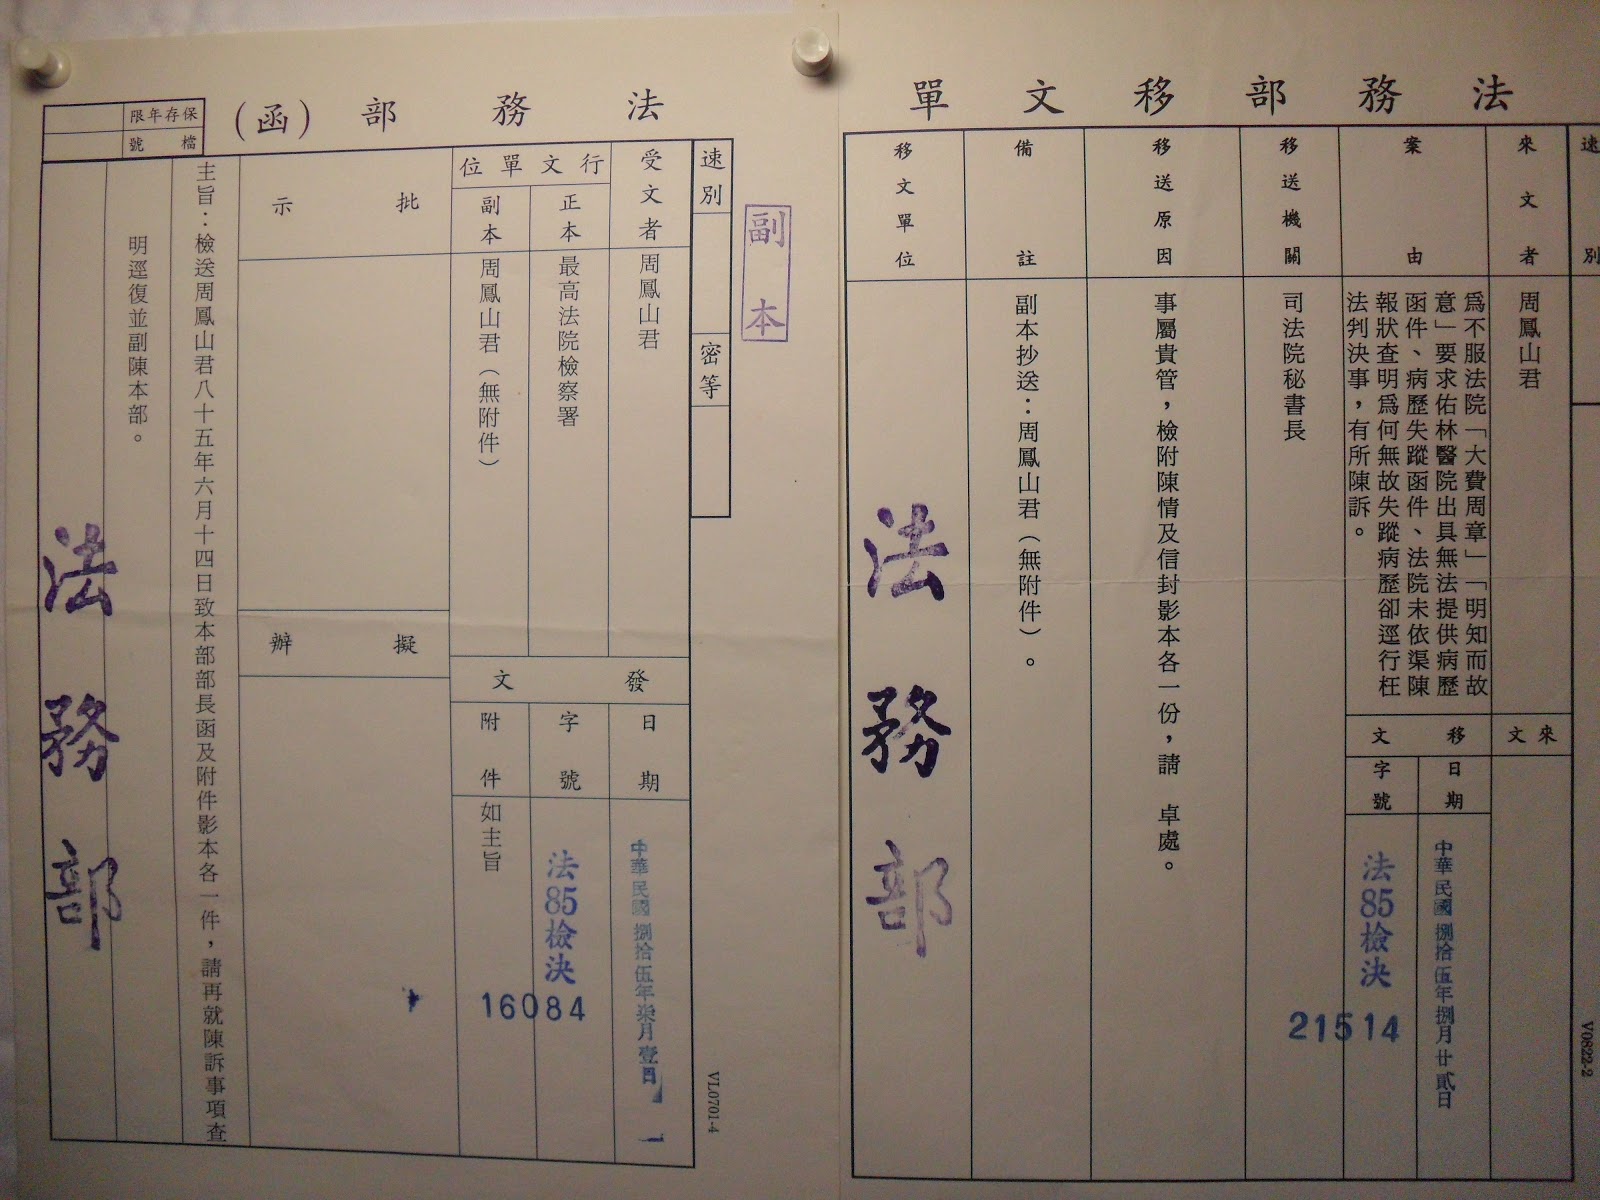 法務部移文單
速別
來文者
周鳳山君
來文
案由
為不服法院「大費周章」「明知而故
意」要求佑林醫院出具無法提供病歷
函件、病歷失蹤函件、法院未依渠陳
報狀查明為何無故失蹤病歷卻逕行枉
法判決事，有所陳訴。
移文
日期
中華民國捌拾伍年捌月廿貳日
字號
法85檢決
21514
移送機關
司法院秘書長
移送原因
事屬貴管，檢附陳情及信封影本各一份，請　卓處。
備註
副本抄送：周鳳山君（無附件）。
移文單位
法務部
V0622-2
副本
法務部（函）
保存年限
檔號
速別
密等
受文者
周鳳山君
行文單位
正本
最高法院檢察署
副本
周鳳山君（無附件）
發文
日期
中華民國捌拾伍年柒月壹日
字號
法85檢決
16084
附件
如主旨
批示
擬辦
主旨：檢送周鳳山君八十五年六月十四日致本部部長函及附件影本各一件，請再就陳訴事項查
明逕復並副陳本部。
法務部
VL0701-4